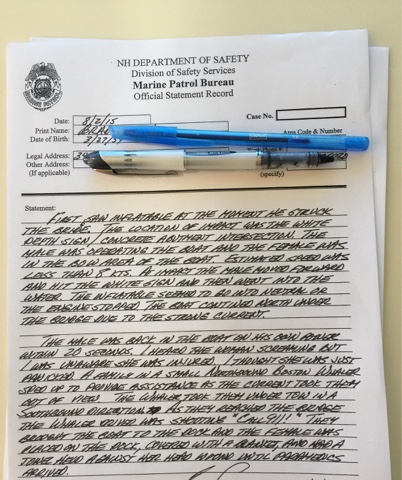 NH DEPARTMENT OF SAFETY
Division of Safety Services
Marine Patrol Bureau
Official Statement Record
Case No.
Date: 8/2/15
Print Name:
Area Code & Number
Date of Birth:
Legal Address:
Other Address:
(If applicable)
(specify)
Statement:
FIRST SAW INFLATABLE AT THE MOMENT HE STRUCK
THE BRIDGE. THE LOCATION OF IMPACT WAS THE WHITE
DEPTH SIGN / CONCRETE ABUTMENT INTERSECTION. THE
MALE WAS OPERATING THE BOAT AND THE FEMALE WAS
IN THE BOW AREA OF THE BOAT. ESTIMATED SPEED WAS
LESS THAN 8 KTS. AT IMPACT THE MALE MOVED FORWARD
AND HIT THE WHITE SIGN AND THEN WENT INTO THE
WATER. THE INFLATABLE SEEMED TO GO INTO NEUTRAL OR
THE ENGINE STOPPED. THE BOAT CONTINUED NORTH UNDER
THE BRIDGE DUE TO THE STRONG CURRENT.
THE MALE WAS BACK IN THE BOAT ON HIS OWN POWER
WITHIN 20 SECONDS. I HEARD THE WOMAN SCREAMING BUT
I WAS UNAWARE SHE WAS INJURED. I THOUGHT SHE WAS JUST
PANICKED. A FAMILY IN A SMALL NORTHBOUND BOSTON WHALER
SPED UP TO PROVIDE ASSISTANCE AS THE CURRENT TOOK THEM
OUT OF VIEW. THE WHALER TOOK THEM UNDER TOW IN A
SOUTHBOUND DIRECTION. AS THEY REACHED THE BRIDGE
THE WHALER DRIVER WAS SHOUTING "CALL 911!" THEY
BROUGHT THE BOAT TO THE DOCK AND THE FEMALE WAS
PLACED ON THE DOCK, COVERED WITH A BLANKET, AND HAD A
TOWEL HELD AGAINST HER HEAD WOUND UNTIL PARAMEDICS
ARRIVED.